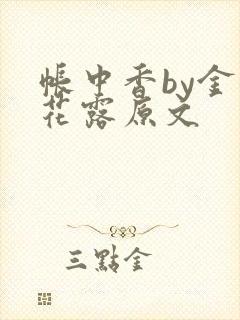 帳中香by金
花露原文
三點金